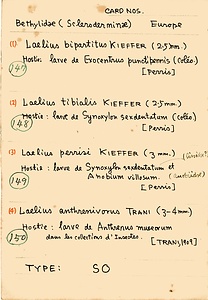 CARD NOS.
Bethylidae (Scleroderminae) Europe
(1) Laelius bipartitus KIEFFER (2.5mm.)
147 Hostis: larve de Exocentrus punctipennis (Coléo.)
[Perris]
(2) Laelius tibialis KIEFFER (2.5mm.)
148 Hostis: larve de Synoxylon sexdentatum (Coléo.)
[Perris]
(3) Laelius perrisi KIEFFER (3 mm.)
149 Hostis: larve de Synoxylon sexdentatum et
Anobium villosum.
[Perris]
(4) Laelius anthrenivorus TRANI (3-4mm)
150 Hostis: larve de Anthrenus museorum
dans les collections d'Insectes. [TRANI, 1909]
TYPE: SO